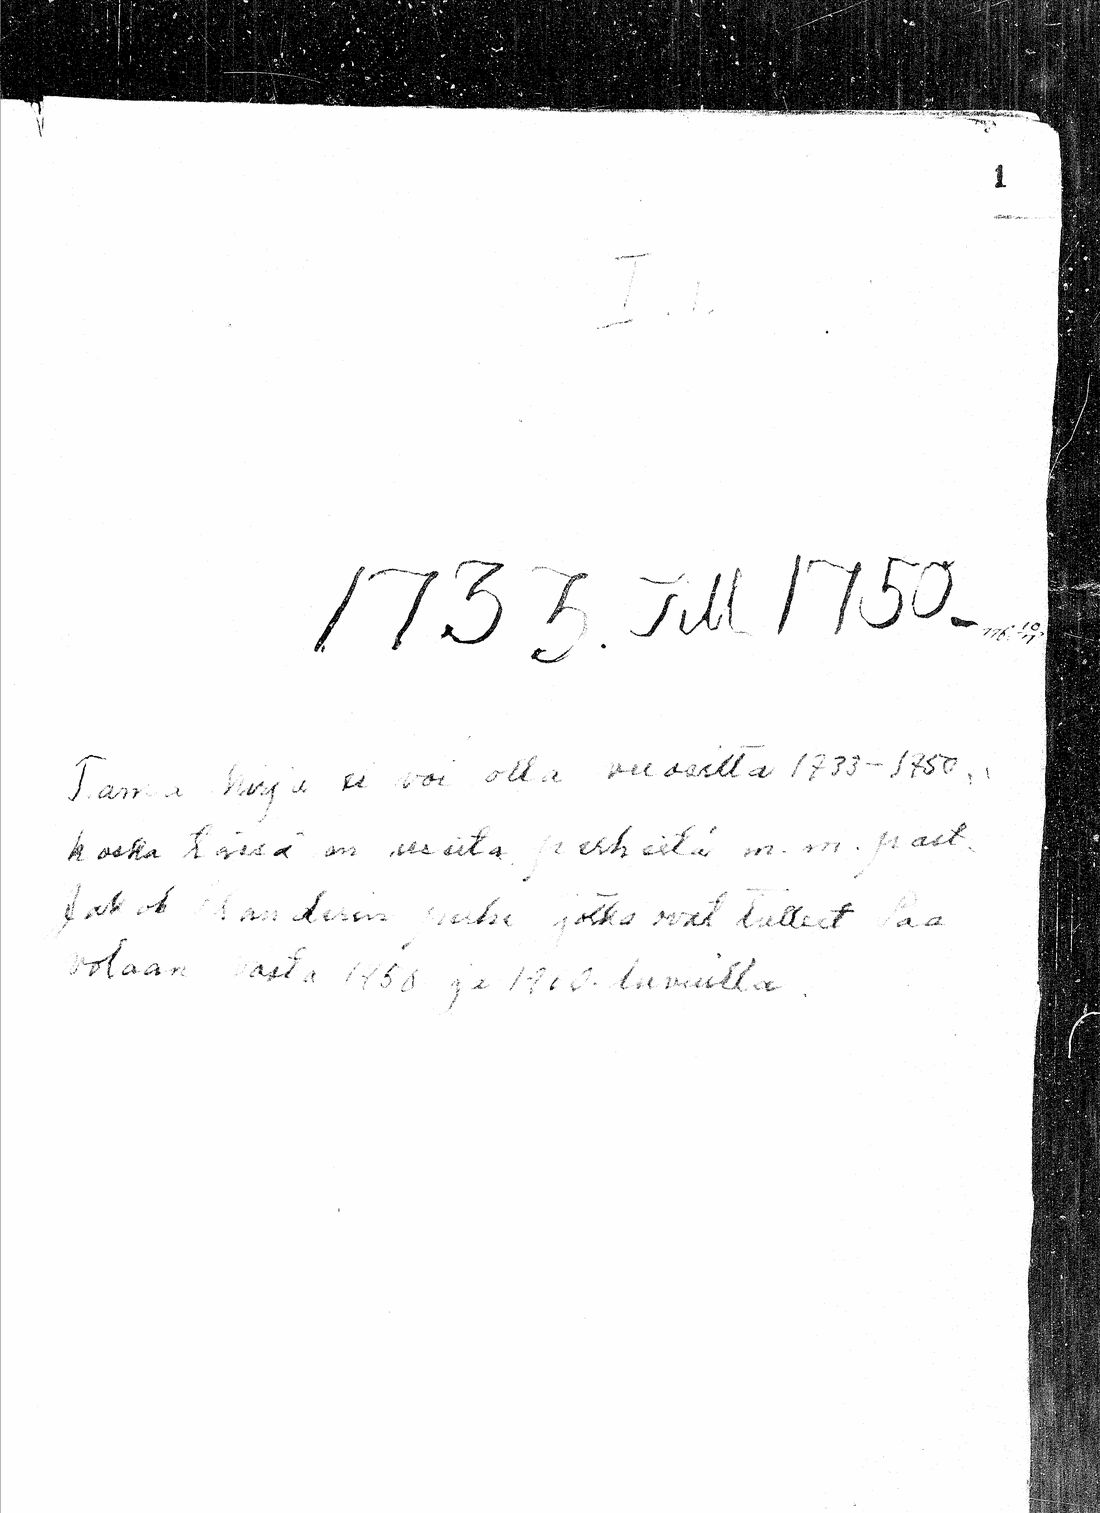 1
I. 1.
1733. Till 1750.
Tämä kirja ei voi olla vuosilta 1733-1750,
koska tässä on useita perheitä m. m. past.
Jakob perhe jotka ovat tulleet Paa
volaan vasta ja luvuilla.